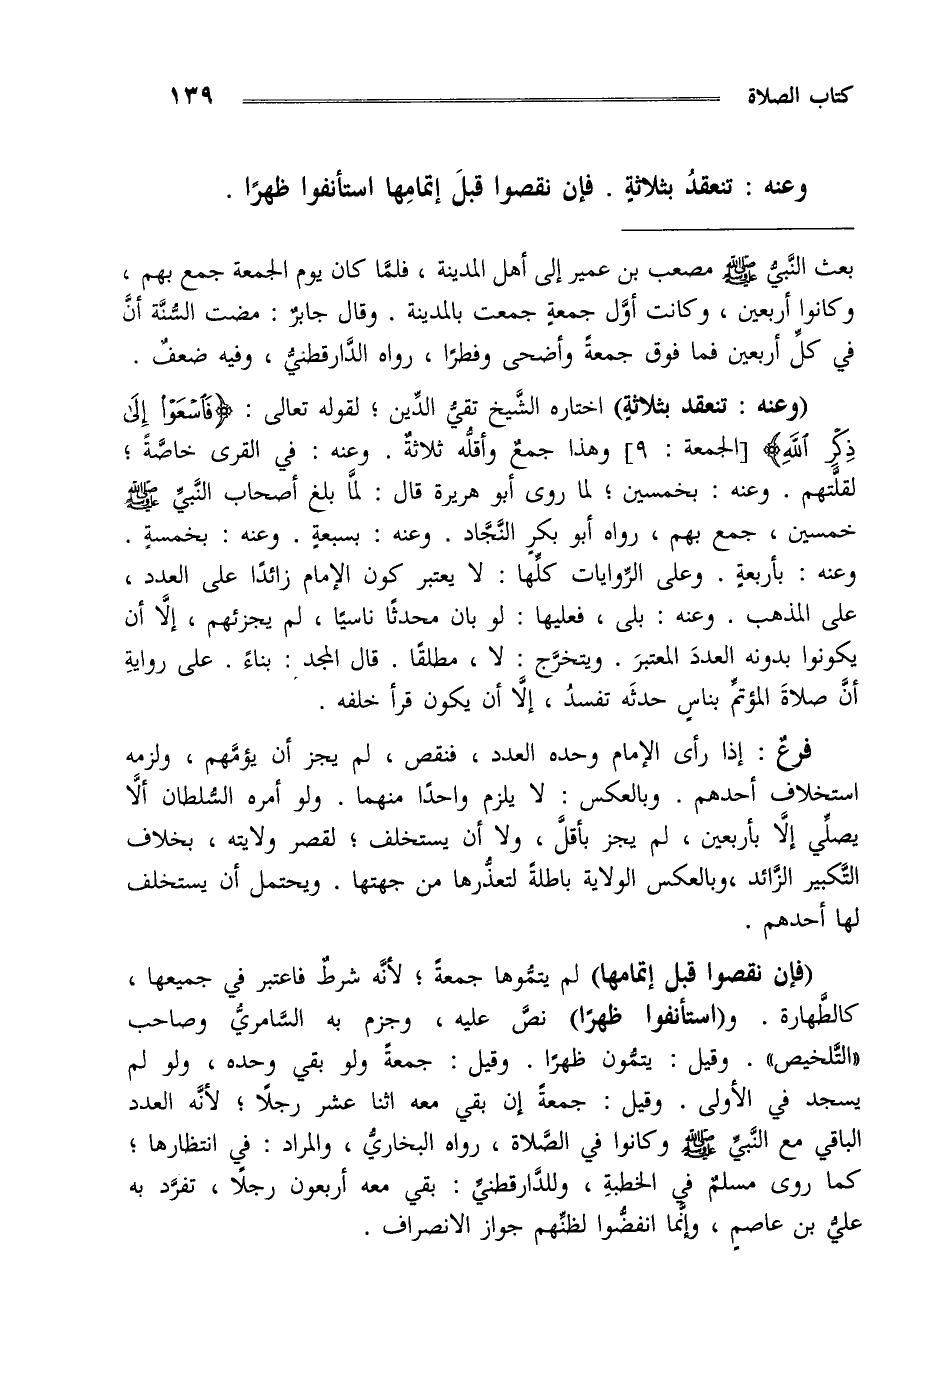 كتاب الصلاة ١٣٩
وعنه : تنعقدُ بثلاثةٍ . فإن نقصوا قبلَ إتمامِها استأنفوا ظهرًا .
بعث النَّبيُّ ﷺ مصعب بن عمير إلى أهل المدينة ، فلمَّا كان يوم الجمعة جمع بهم ،
وكانوا أربعين ، وكانت أوَّل جمعةٍ جمعت بالمدينة . وقال جابرٌ : مضت السُّنَّة أنَّ
في كلِّ أربعين فما فوق جمعةً وأضحى وفطرًا ، رواه الدَّارقطنيُّ ، وفيه ضعفٌ .
(وعنه : تنعقد بثلاثةٍ) اختاره الشَّيخ تقيُّ الدِّين ؛ لقوله تعالى : ﴿فَٱسْعَوْا۟ إِلَىٰ
ذِكْرِ ٱللَّهِ﴾ [الجمعة : ٩] وهذا جمعٌ وأقلُّه ثلاثةٌ . وعنه : في القرى خاصَّةً ؛
لقلَّتهم . وعنه : بخمسين ؛ لما روى أبو هريرة قال : لمَّا بلغ أصحاب النَّبيِّ ﷺ
خمسين ، جمع بهم ، رواه أبو بكرٍ النَّجَّاد . وعنه : بسبعةٍ . وعنه : بخمسةٍ .
وعنه : بأربعةٍ . وعلى الرِّوايات كلِّها : لا يعتبر كون الإمام زائدًا على العدد ،
على المذهب . وعنه : بلى ، فعليها : لو بان محدثًا ناسيًا ، لم يجزئهم ، إلَّا أن
يكونوا بدونه العددَ المعتبرَ . ويتخرَّج : لا ، مطلقًا . قال المجد : بناءً . على روايةِ
أنَّ صلاةَ المؤتمِّ بناسٍ حدثَه تفسدُ ، إلَّا أن يكون قرأ خلفه .
فرعٌ : إذا رأى الإمام وحده العدد ، فنقص ، لم يجز أن يؤمَّهم ، ولزمه
استخلاف أحدهم . وبالعكس : لا يلزم واحدًا منهما . ولو أمره السُّلطان ألَّا
يصلِّي إلَّا بأربعين ، لم يجز بأقلَّ ، ولا أن يستخلف ؛ لقصر ولايته ، بخلاف
التَّكبير الزَّائد ،وبالعكس الولاية باطلةً لتعذُّرها من جهتها . ويحتمل أن يستخلف
لها أحدهم .
(فإن نقصوا قبل إتمامها) لم يتمُّوها جمعةً ؛ لأنَّه شرطٌ فاعتبر في جميعها ،
كالطَّهارة . و(استأنفوا ظهرًا) نصَّ عليه ، وجزم به السَّامريُّ وصاحب
«التَّلخيص» . وقيل : يتمُّون ظهرًا . وقيل : جمعةً ولو بقي وحده ، ولو لم
يسجد في الأولى . وقيل : جمعةً إن بقي معه اثنا عشر رجلًا ؛ لأنَّه العدد
الباقي مع النَّبيِّ ﷺ وكانوا في الصَّلاة ، رواه البخاريُّ ، والمراد : في انتظارها ؛
كما روى مسلمٌ في الخطبةِ ، وللدَّارقطنيِّ : بقي معه أربعون رجلًا ، تفرَّد به
عليُّ بن عاصمٍ ، وإنَّما انفضُّوا لظنِّهم جواز الانصراف .